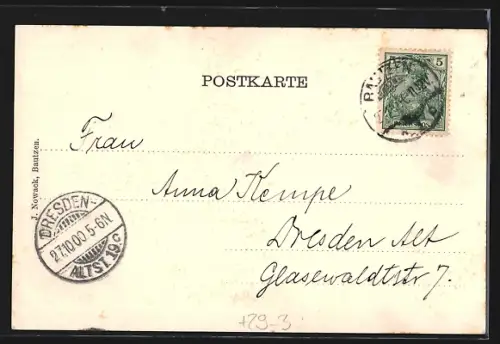 POSTKARTE
BAUTZEN
5
Frau
Anna Kempe
Dresden Alt
Glasewaldtstr 7.
J. Nowack, Bautzen.
DRESDEN-
27.10.00.5-6N
ALTST.19c
+29-3